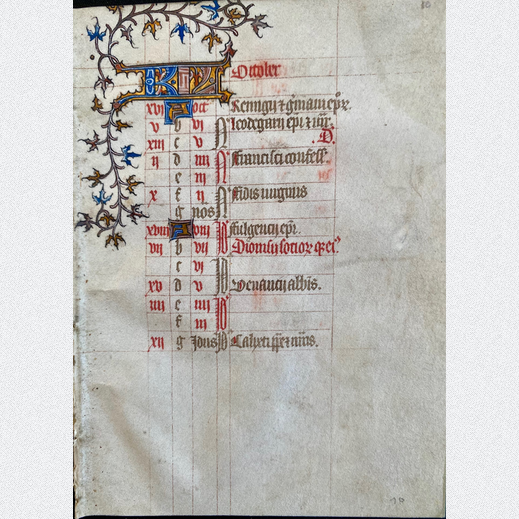 KL October
xvi A oct Remigii z gmani epr.
v b vi N Leodegarii epi z mr.
xiii c v N .D.
ii d iiii N Francisci confess.
e iii N
x f ii N Fidis virginis
g nos N
xviii A viii Id Fulgencii epi.
vii b vii Id Dionisii socior
c vi Id
xv d v Id Venancii abbis.
iiii e iiii Id
f iii Id
xii g Idus Id Calixti pp z mris.